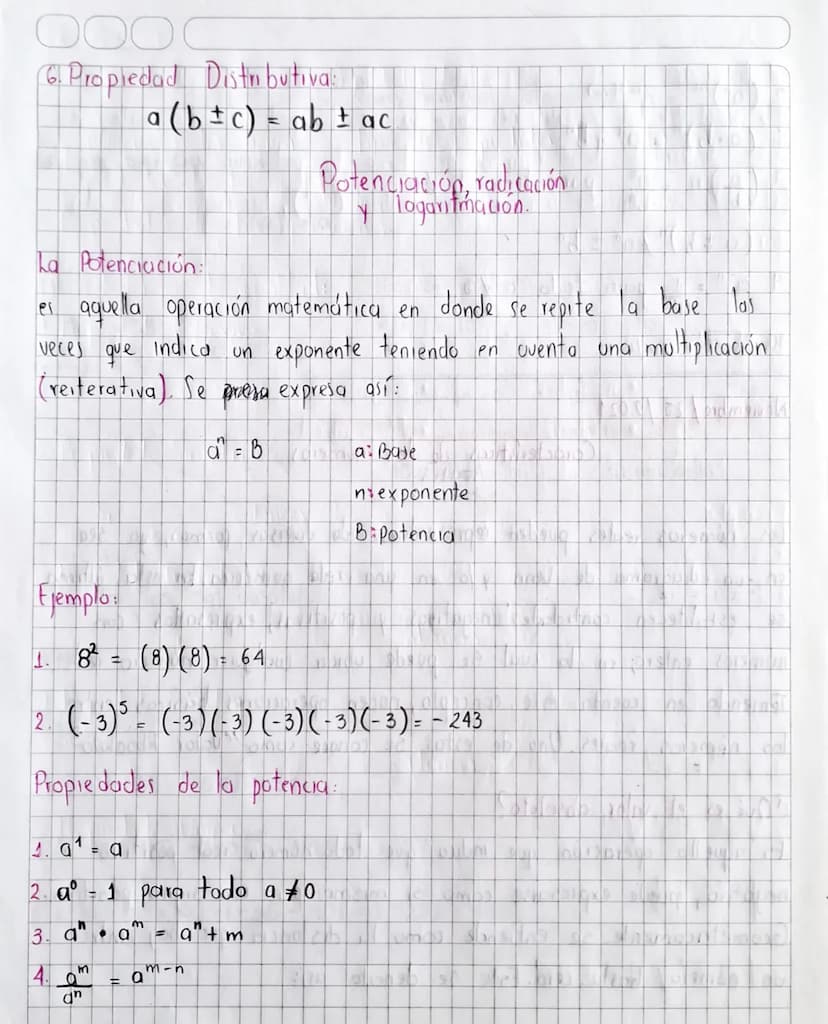 6. Propiedad Distributiva:
a (b ± c) = ab ± ac
Potenciación, radicación
y logaritmación.
La Potenciación:
es aquella operación matemática en donde se repite la base las
veces que indica un exponente teniendo en cuenta una multiplicación
(reiterativa). Se expresa así:
aⁿ = B a: Base
n: exponente
B: potencia
Ejemplo:
1. 8² = (8) (8) = 64
2. (-3)⁵ = (-3) (-3) (-3) (-3) (-3) = - 243
Propiedades de la potencia:
1. a¹ = a
2. a⁰ = 1 para todo a ≠ 0
3. aⁿ • aᵐ = aⁿ + m
4. aᵐ/aⁿ = aᵐ⁻ⁿ